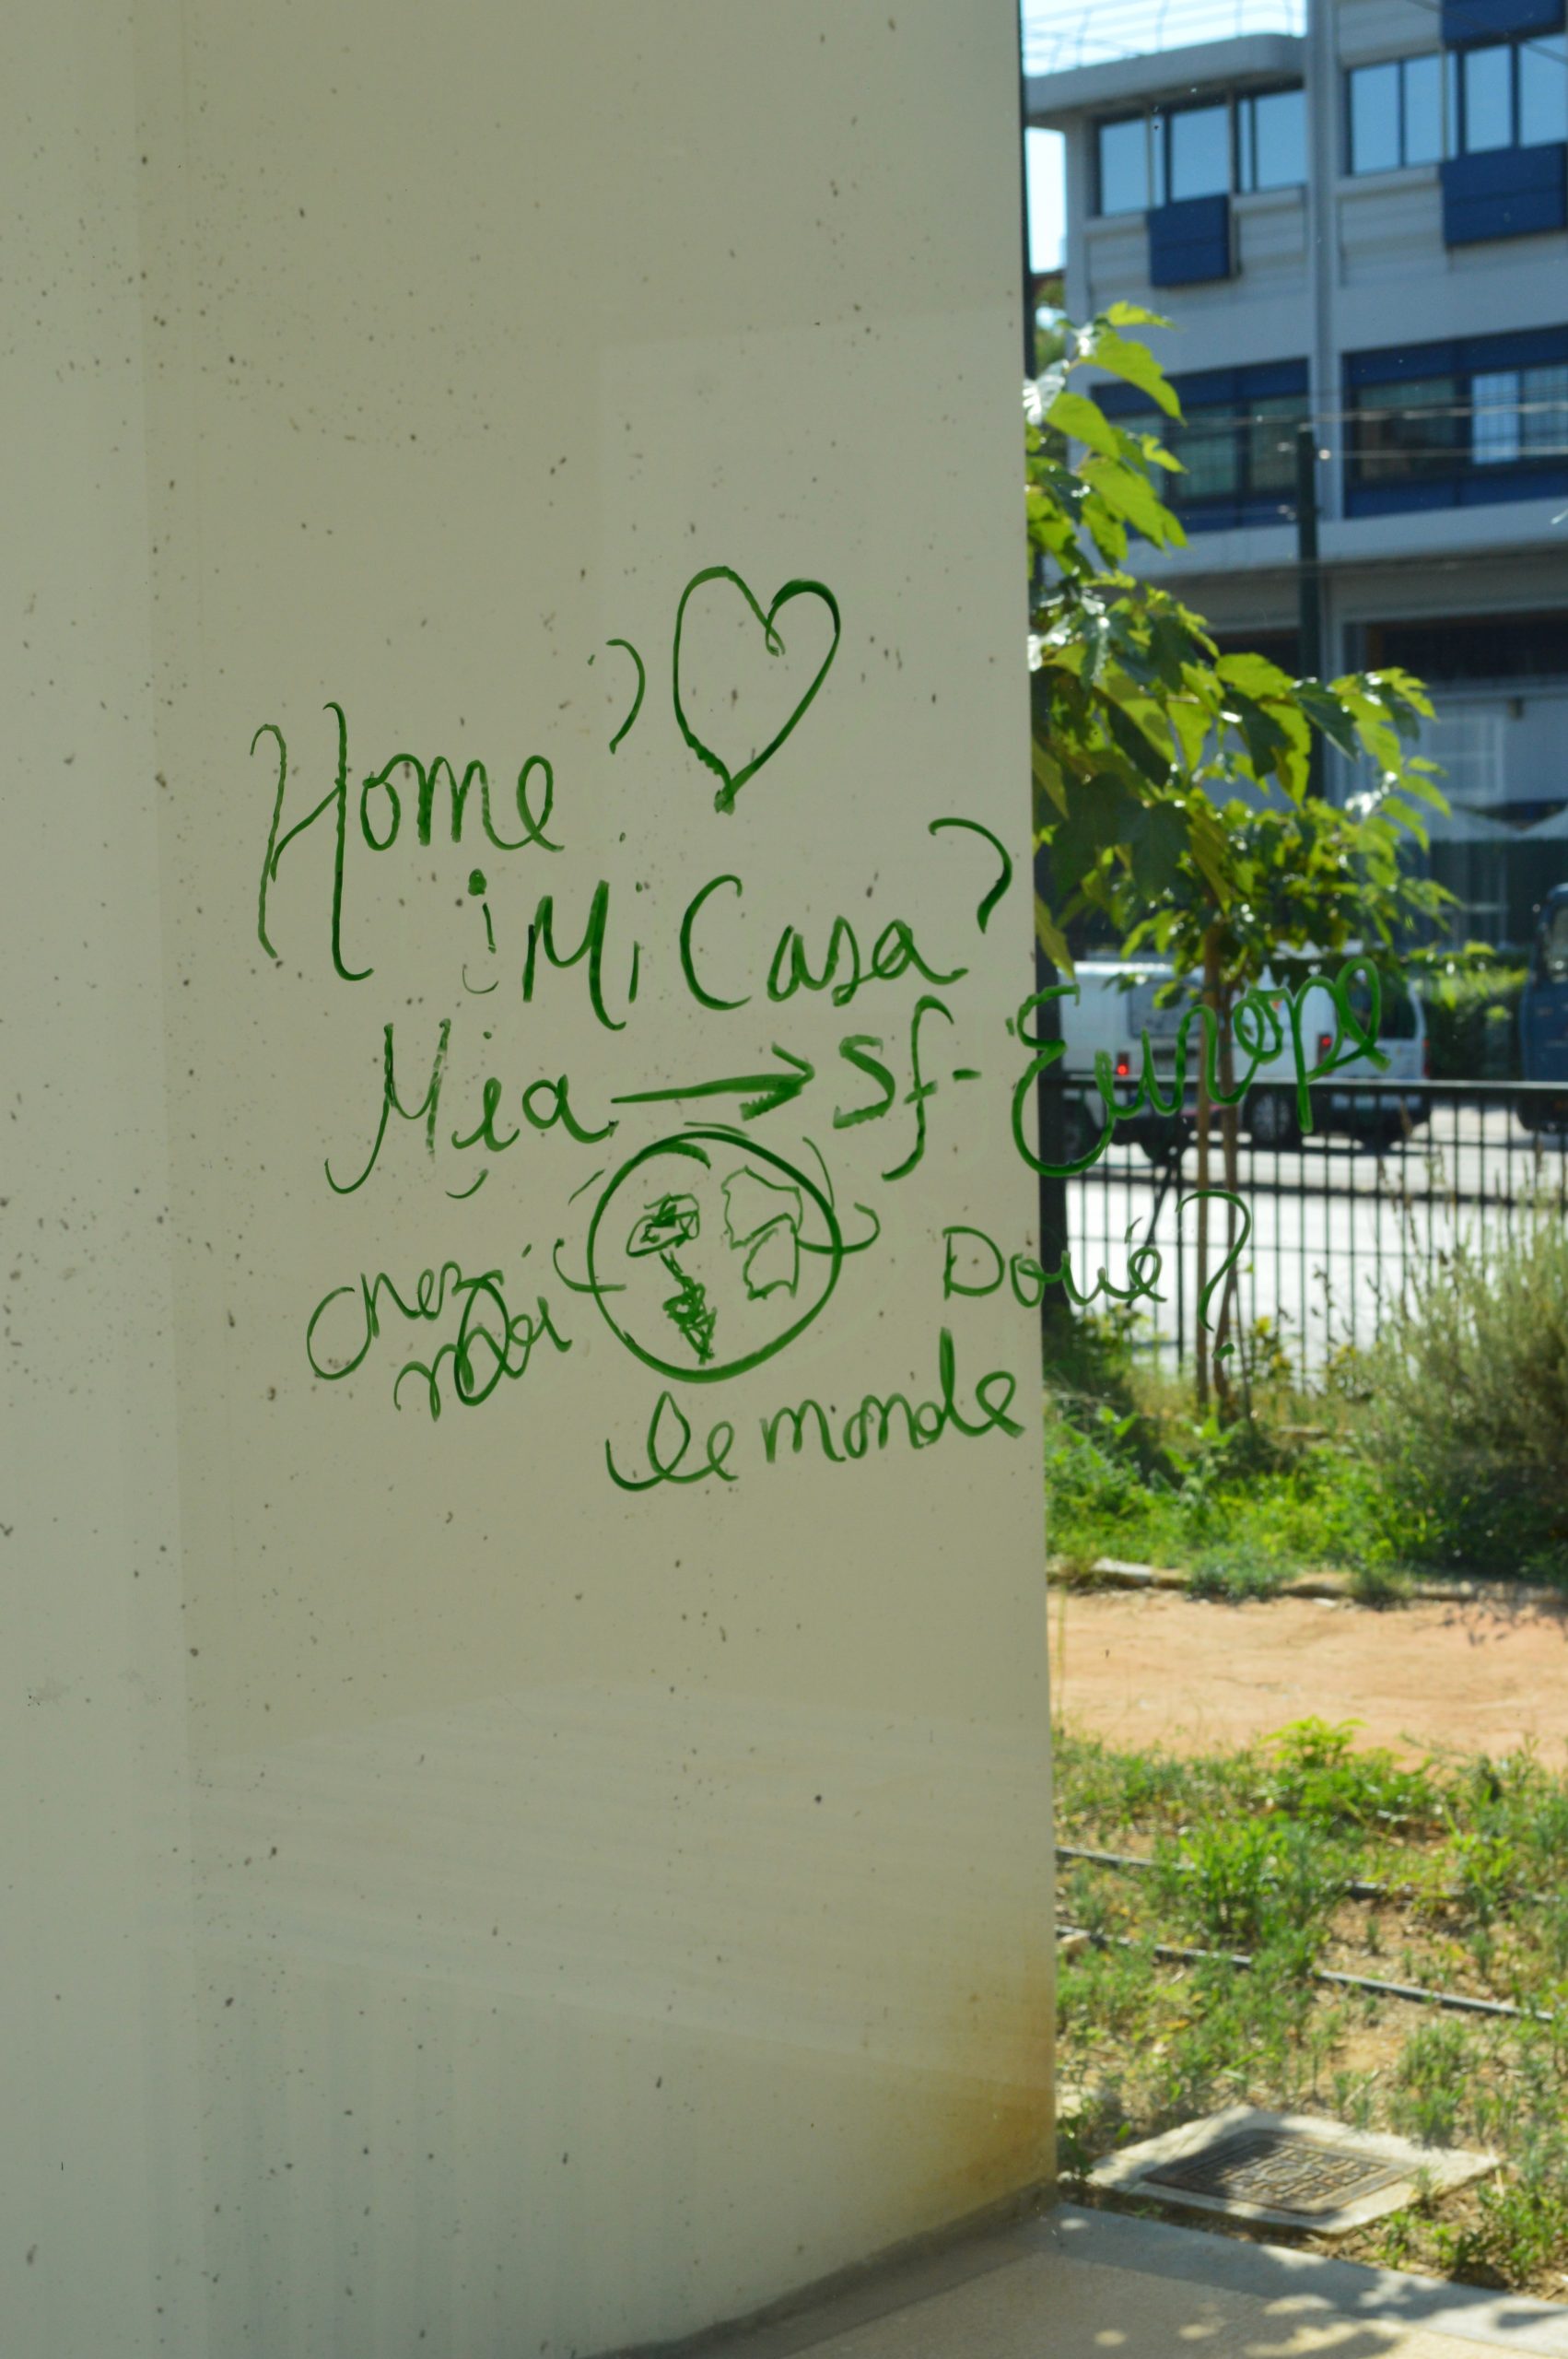 Home?
¿Mi Casa?
Mia → Sf-Europe
chez
moi
Dové?
le monde